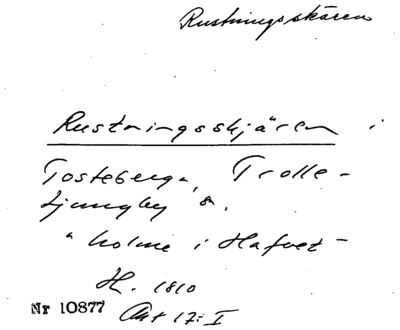 Rustningsskären
Rustningsskjären i
Tosteberga, Trolle-
Ljungby s.
"holme i Hafvet"
H. 1810
Nr 10877 Akt 17: I